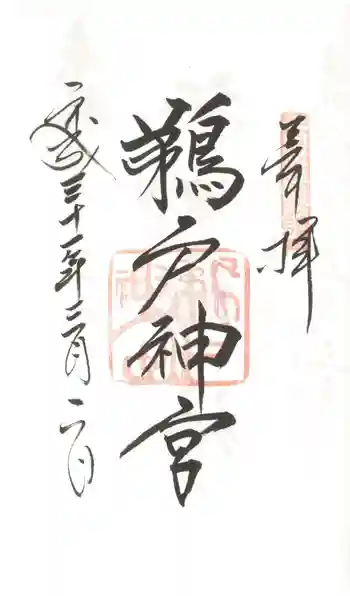 奉拝
鵜戸神宮
平成三十一年三月二日